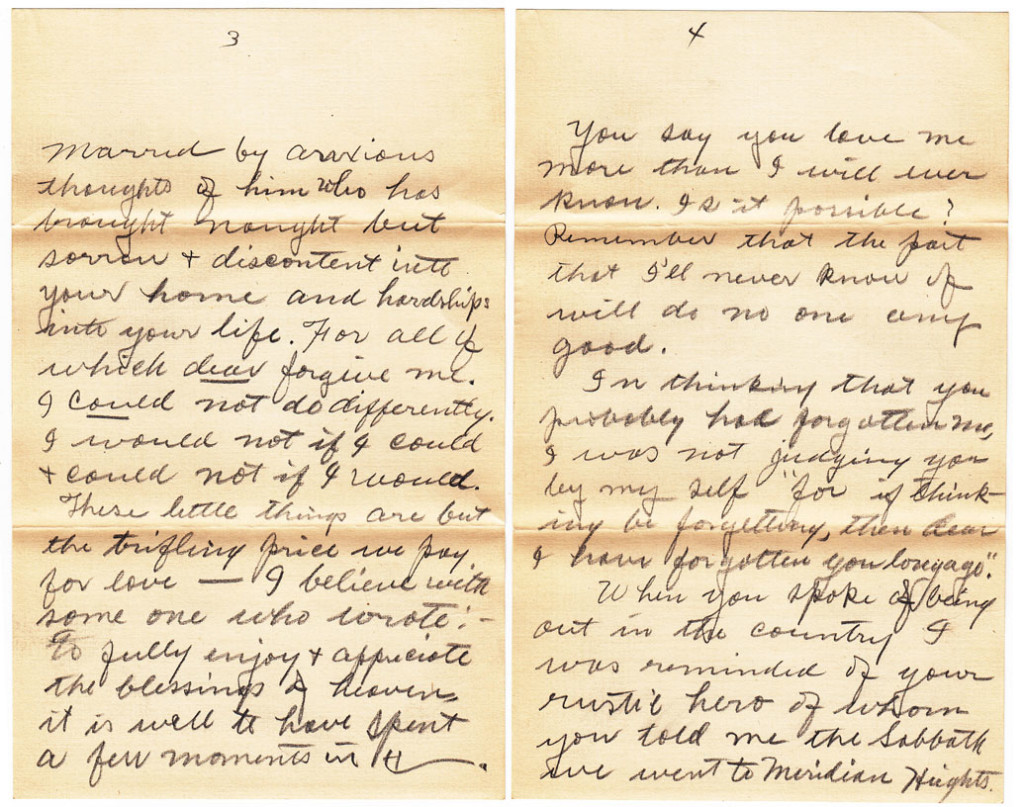 3
Marred by anxious
thoughts of him who has
brought naught but
sorrow + discontent into
your home and hardships
into your life. For all of
which dear forgive me.
I could not do differently.
I would not if I could
+ could not if I would.
These little things are but
the trifling price we pay
for love — I believe with
some one who wrote:-
To fully enjoy + appreciate
the blessings of heaven
it is well to have spent
a few moments in H—.
4
You say you love me
more than I will ever
know. Is it possible?
Remember that the part
that I'll never know of
will do no one any
good.
In thinking that you
probably had forgotten me,
I was not judging you
by my self "for if think-
ing be forgetting, then dear
I have forgotten you long ago".
When you spoke of being
out in the country I
was reminded of your
rustic hero of whom
you told me the Sabbath
we went to Meridian Heights.